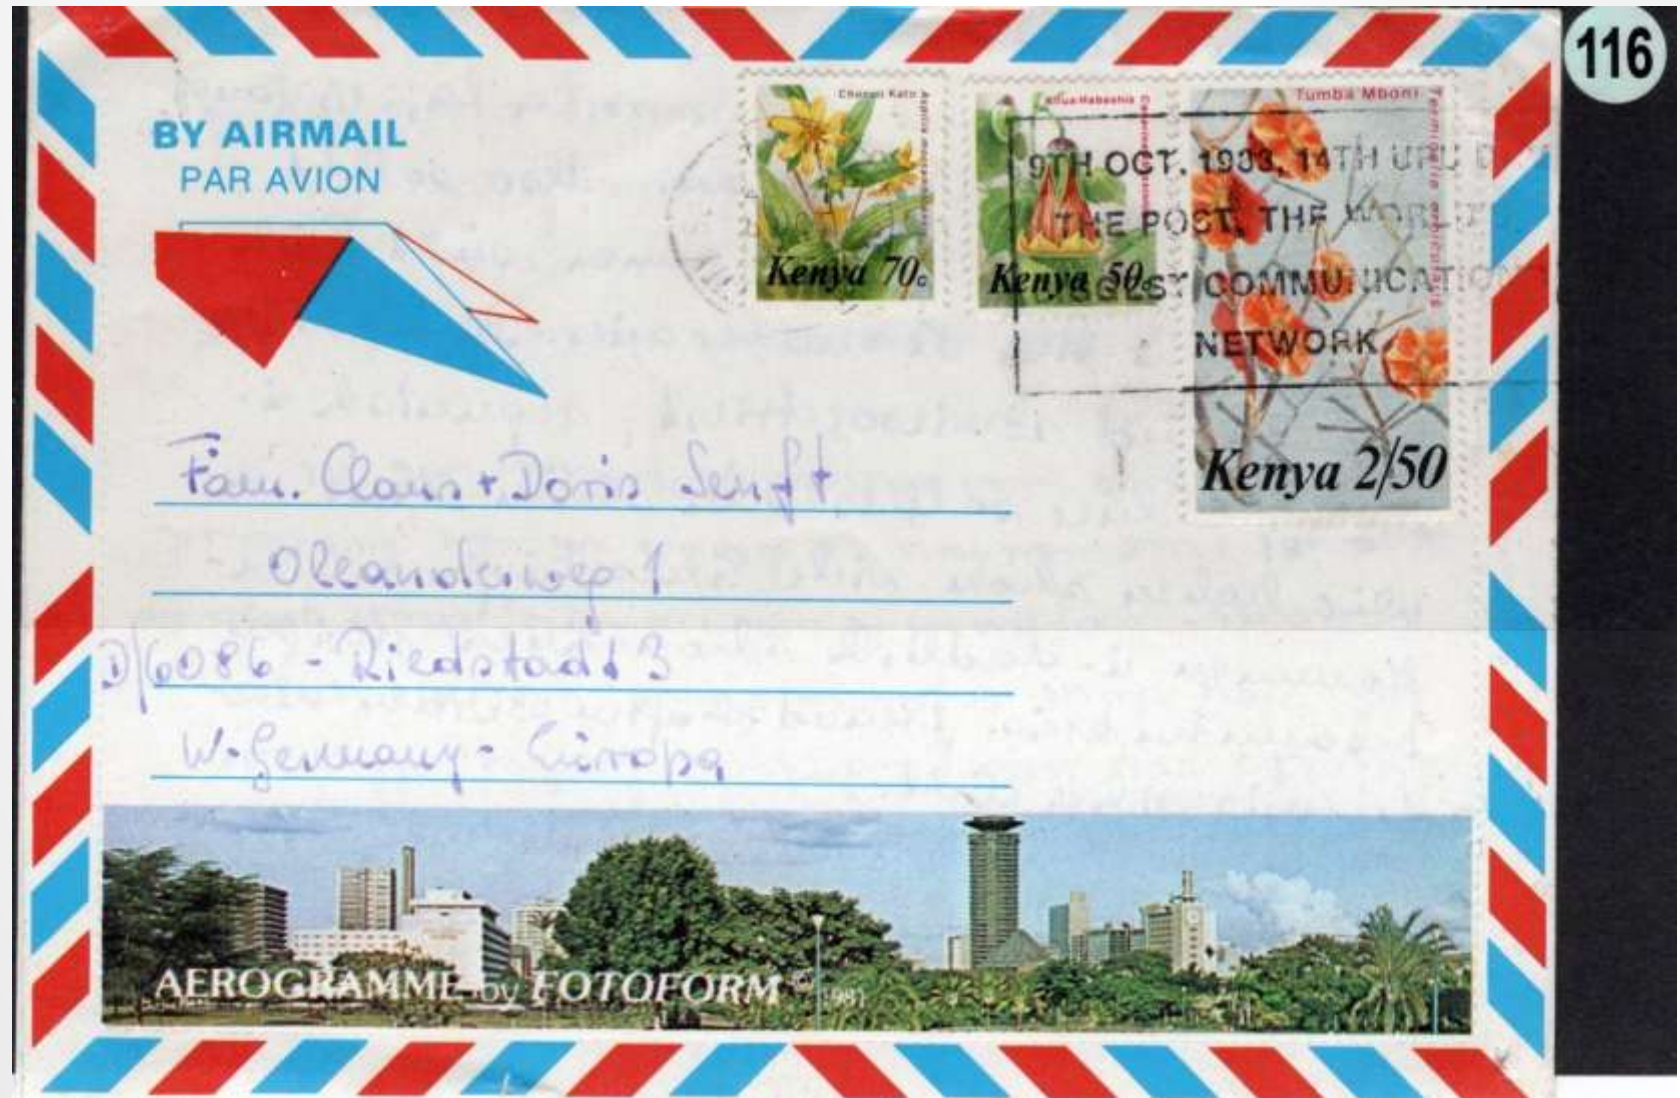 116
BY AIRMAIL
PAR AVION
Kenya 70c
Kenya 50c
Tumba Mboni
Terminalia orbicularis
Kenya 2/50
9TH OCT. 1983, 14TH UPU D
THE POST, THE WORLD
COMMUNICATION
NETWORK
Fam. Claus + Doris Senft
Oleanderweg 1
D/6086 - Riedstadt 3
W-Germany - Europa
AEROGRAMME by FOTOFORM © 1981